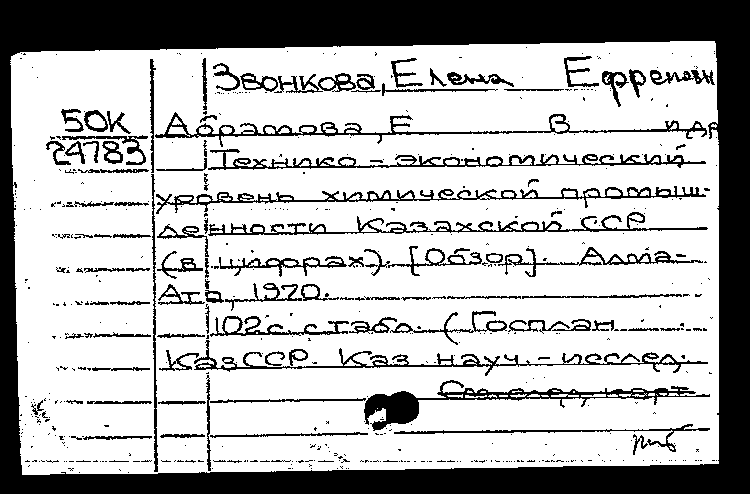 Звонкова, Елена Ефремовн
50К Абрамова, Е В и др
24783 Технико-экономический
уровень химической промыш-
ленности Казахской ССР
(в цифрах). [Обзор]. Алма-
Ата, 1970.
102 с. с табл. (Госплан
КазССР. Каз науч.-исслед.
След. карт